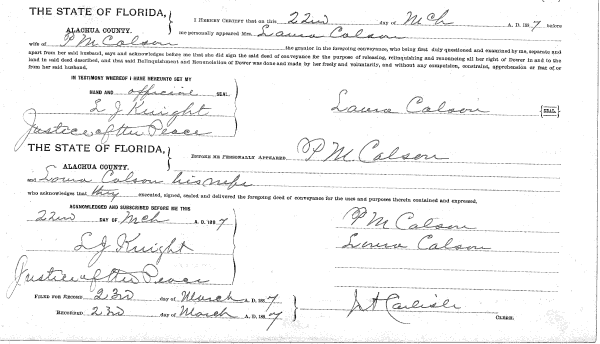 THE STATE OF FLORIDA,
ALACHUA COUNTY.
I HEREBY CERTIFY that on this 22nd day of Mch A. D. 1887 before
me personally appeared Mrs. Laura Colson
wife of P M Colson the grantor in the foregoing conveyance, who being first duly questioned and examined by me, separate and
apart from her said husband, says and acknowledges before me that she did sign the said deed of conveyance for the purpose of releasing, relinquishing and renouncing all her right of Dower in and to the
land in said deed described, and that said Relinquishment and Renunciation of Dower was done and made by her freely and voluntarily, and without any compulsion, constraint, apprehension or fear of or
from her said husband.
IN TESTIMONY WHEREOF I HAVE HEREUNTO SET MY
HAND AND official SEAL.
L J Knight
Justice of the Peace
Laura Colson SEAL.
THE STATE OF FLORIDA,
ALACHUA COUNTY.
BEFORE ME PERSONALLY APPEARED P M Colson
and Laura Colson his wife
who acknowledges that they executed, signed, sealed and delivered the foregoing deed of conveyance for the uses and purposes therein contained and expressed.
ACKNOWLEDGED AND SUBSCRIBED BEFORE ME THIS
22nd DAY OF Mch A. D. 1887
L J Knight
Justice of the Peace
P M Colson
Laura Colson
FILED FOR RECORD 23rd day of March A. D. 1887
RECORDED 23rd day of March A. D. 1887
Carlisle CLERK.